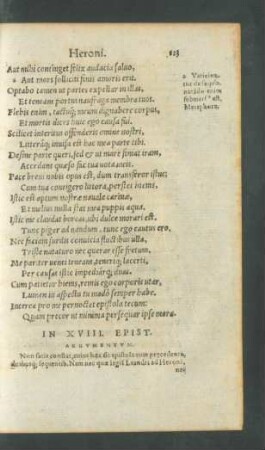 Heroni. 113
Aut mihi continget felix audacia saluo,
a Aut mors solliciti finis amoris erit.
Optabo tamen ut partes expellar in illas,
Et teneam portus naufraga membra tuos.
Flebis enim, tactuq́; meum dignabere corpus,
Et mortis dices huic ego causa fui.
Scilicet interitus offenderis omine nostri,
Litteraq́; inuisa est hac mea parte tibi.
Desine parce queri, sed & ut mare finiat iram,
Accedant quæso fac tua uota meis.
Pace breui nobis opus est, dum transferor istuc;
Cum tua contigero littora, perstet hiems.
Istic est aptum nostræ nauale carinæ,
Et melius nulla stat mea puppis aqua.
Istic me claudat boreas, ubi dulce morari est.
Tunc piger ad nandum, tunc ego cautus ero,
Nec faciam surdis conuicia fluctibus ulla,
Triste nataturo nec querar esse fretum.
Me pariter uenti teneant, teneriq́; lacerti,
Per causas istic impediarq́; duas.
Cum patietur hiems, remis ego corporis utar,
Lumen in aspectu tu modò semper habe.
Interea pro me pernoctet epistola tecum:
Quam precor ut minima persequar ipse mora.
a
est,
Metaphora.
IN XVIII. EPIST.
ARGVMENTVM.
Non satis constat, utrùm hæc sit epistola cum præcedente,
Nam nec quæ legit Leandri ad Heroni,